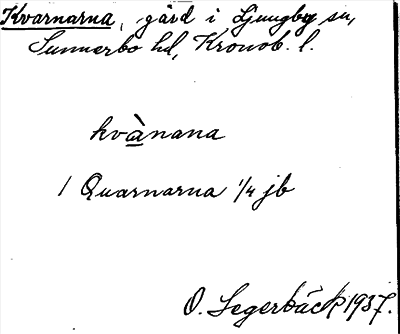 Kvarnarna, gård i Ljungby sn,
Sunnerbo hd, Kronob. l.
hvànana
1 Quarnarna 1/4 jb
O. Segerbäck 1937.